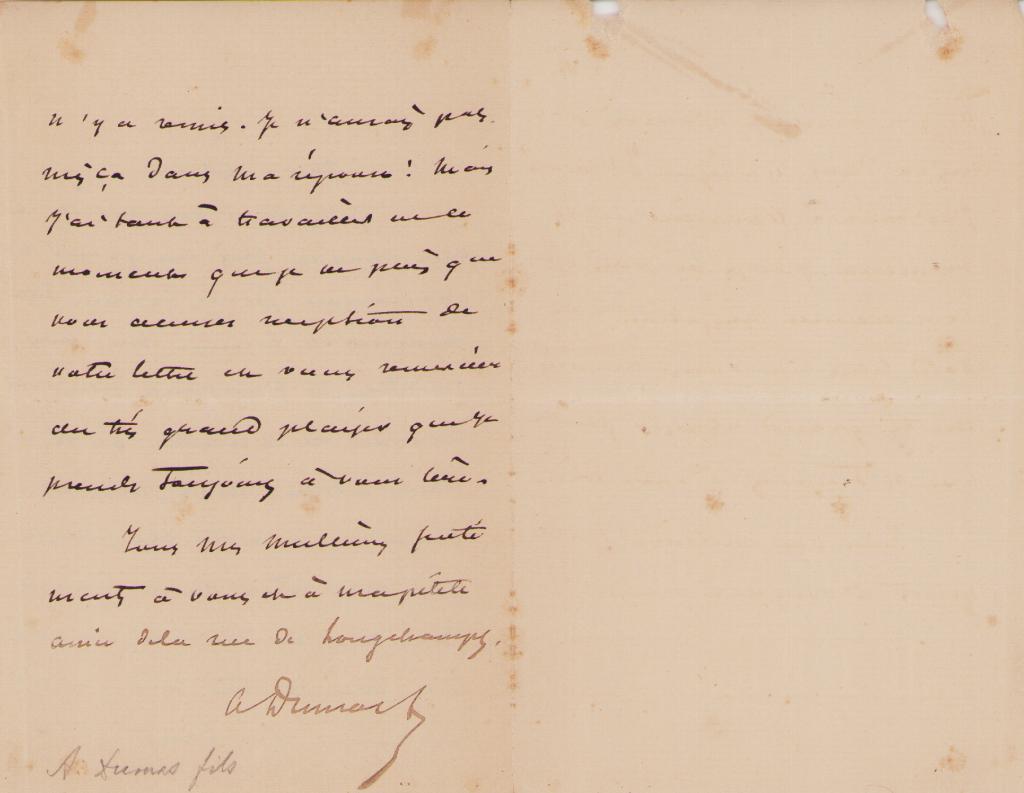 n'y a remis. Je n'aurais pas
mis ça dans ma réponse! Mais
j'ai tant à travailler en ce
moment que je ne puis que
vous accuser reception de
votre lettre en vous remercier
du très grand plaisir que je
prends toujours à vous lire.
Tous mes meilleurs senti
ments à vous et à ma petite
amie de la rue de Longchamps.
A Dumas f
A. Dumas fils